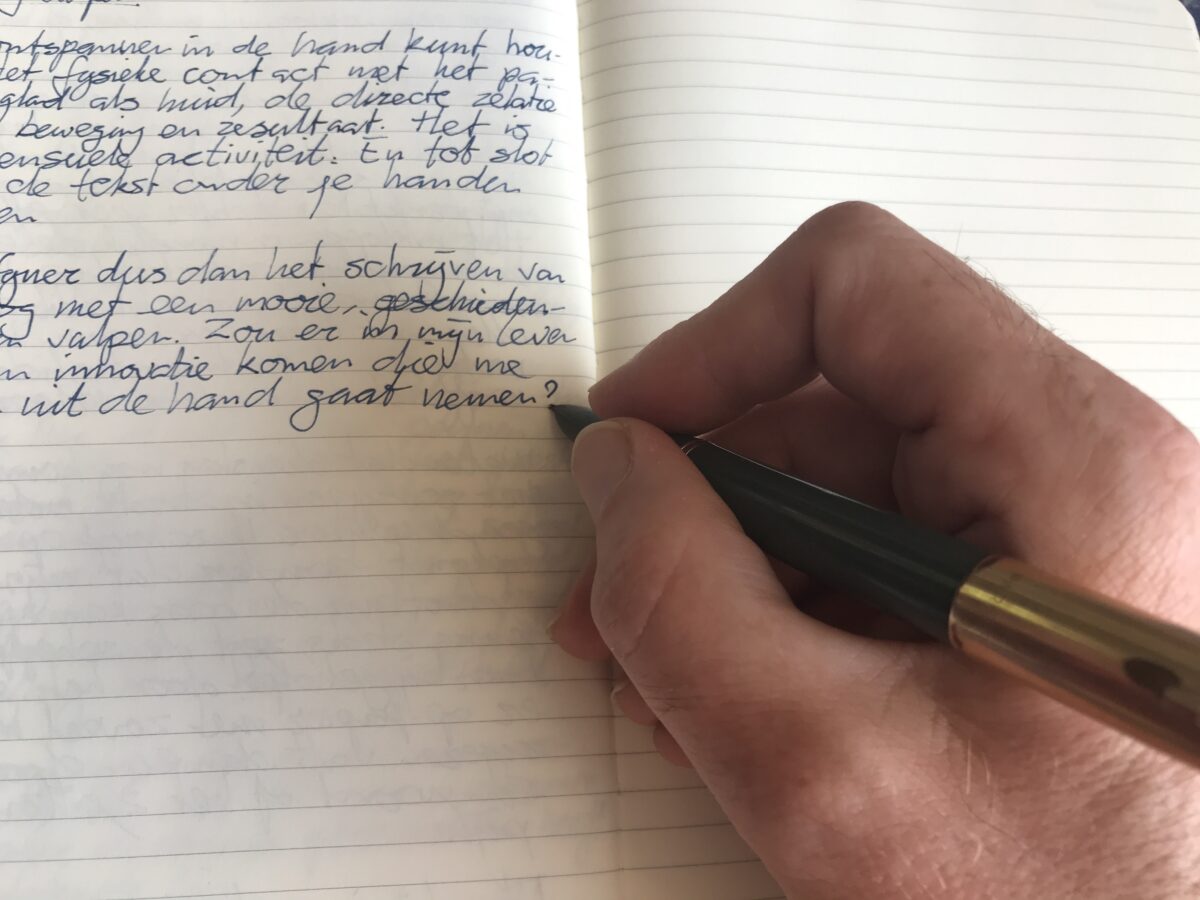 ontspannen in de hand kunt hou-
et fysieke contact met het pa-
glad als huid, de directe relatie
beweging en resultaat. Het is
ensuele activiteit. En tot slot
de tekst onder je handen
en
gner dus dan het schrijven van
og met een mooie, geschieden-
valpen. Zou er in mijn leven
n innovatie komen die me
uit de hand gaat nemen?